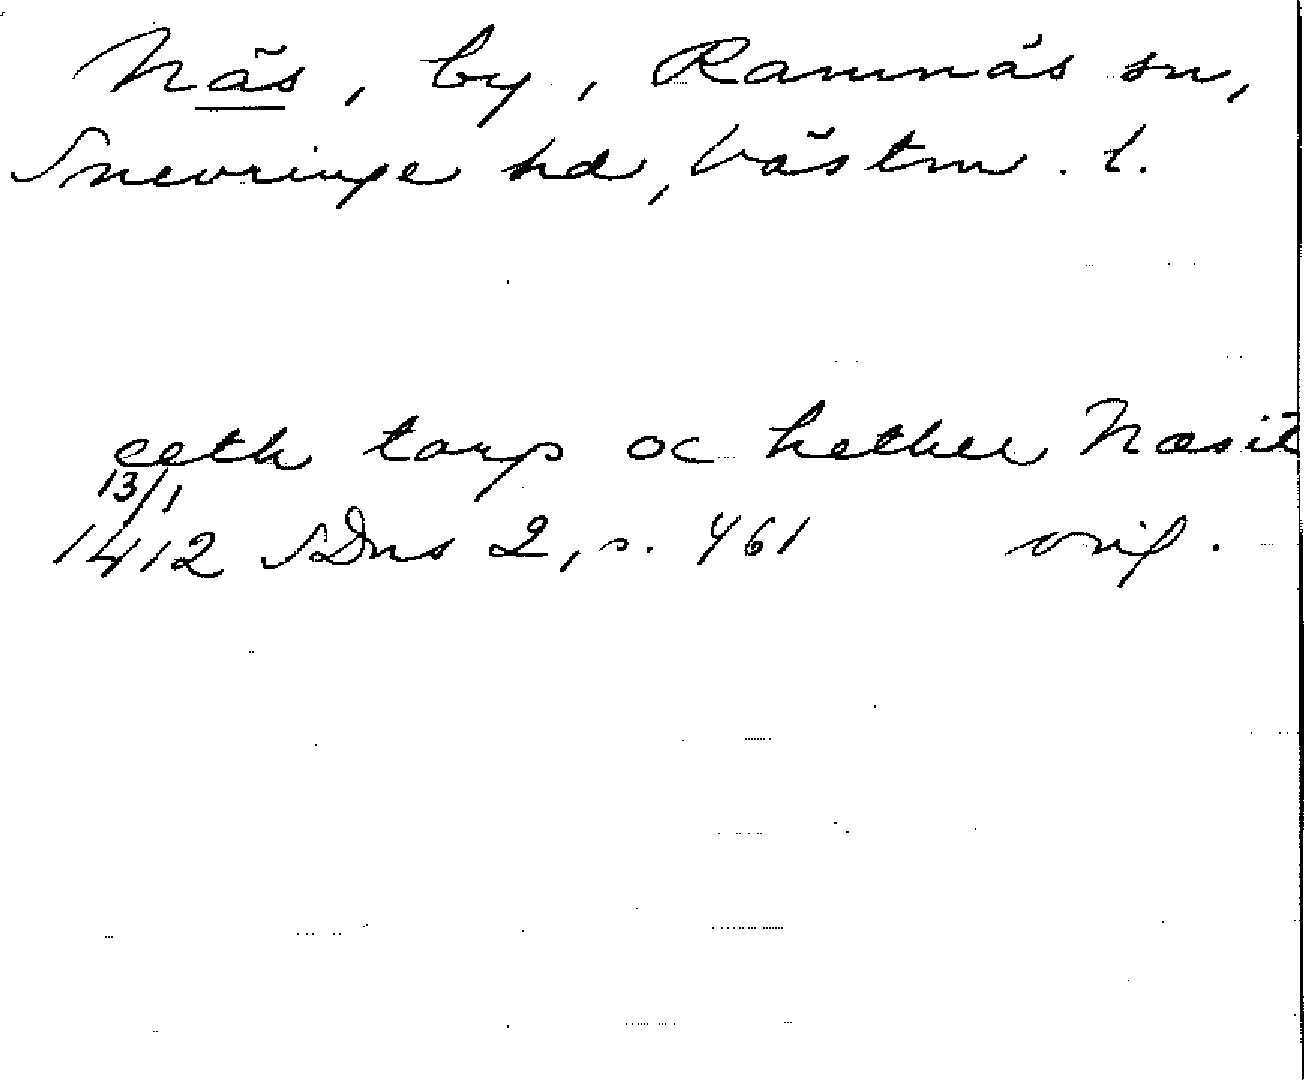 Näs, by, Ramnäs sn,
Snevringe hd, Västm. l.
eeth torp oc hether Næsit
13/1
1412 SDns 2, s. 461 orig.